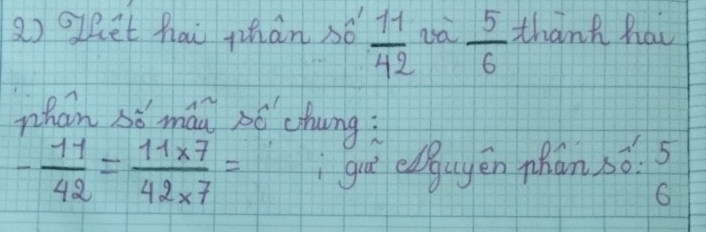 2) Viết hai phân số 11/42 và 5/6 thành hai
phân số mẫu số chung:
- 11/42 = 11x7/42x7 = ; giữ Nguyên phân số: 5/6